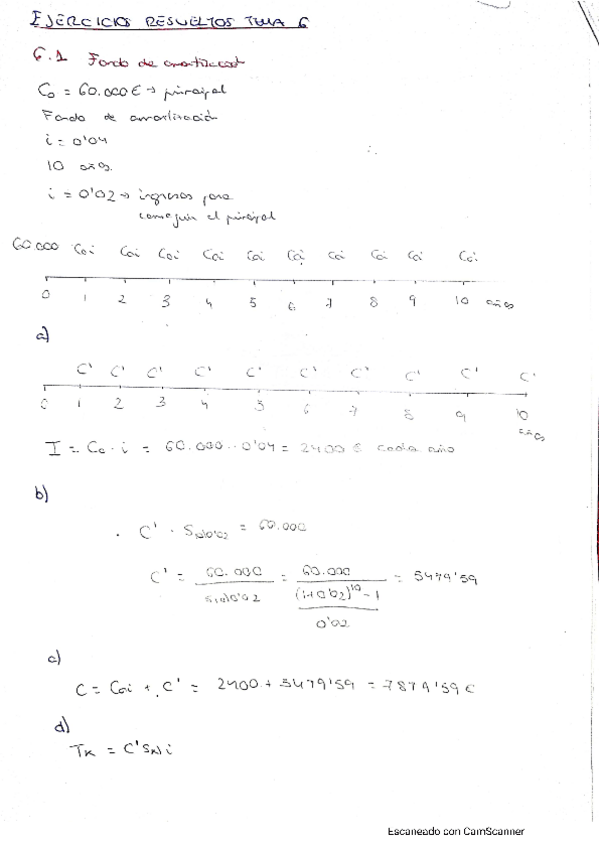 EJERCICIOS RESUELTOS TEMA 6
6.1 Fondo de amortización
C₀ = 60.000 € → principal
Fondo de amortización
i = 0'04
10 años.
i = 0'02 → ingresos para
conseguir el principal
60.000 C₀i C₀i C₀i C₀i C₀i C₀i C₀i C₀i C₀i C₀i
0 1 2 3 4 5 6 7 8 9 10 años
a)
C' C' C' C' C' C' C' C' C' C'
0 1 2 3 4 5 6 7 8 9 10
años
I = C₀ · i = 60.000 · 0'04 = 2400 € cada año
b)
· C' · S₁₀|0'02 = 60.000
C' = 60.000 / S₁₀|0'02 = 60.000 / (((1+0'02)¹⁰ - 1) / 0'02) = 5479'59
c)
C = C₀i + C' = 2400 + 5479'59 = 7879'59 €
d)
Tₖ = C' S
Escaneado con CamScanner